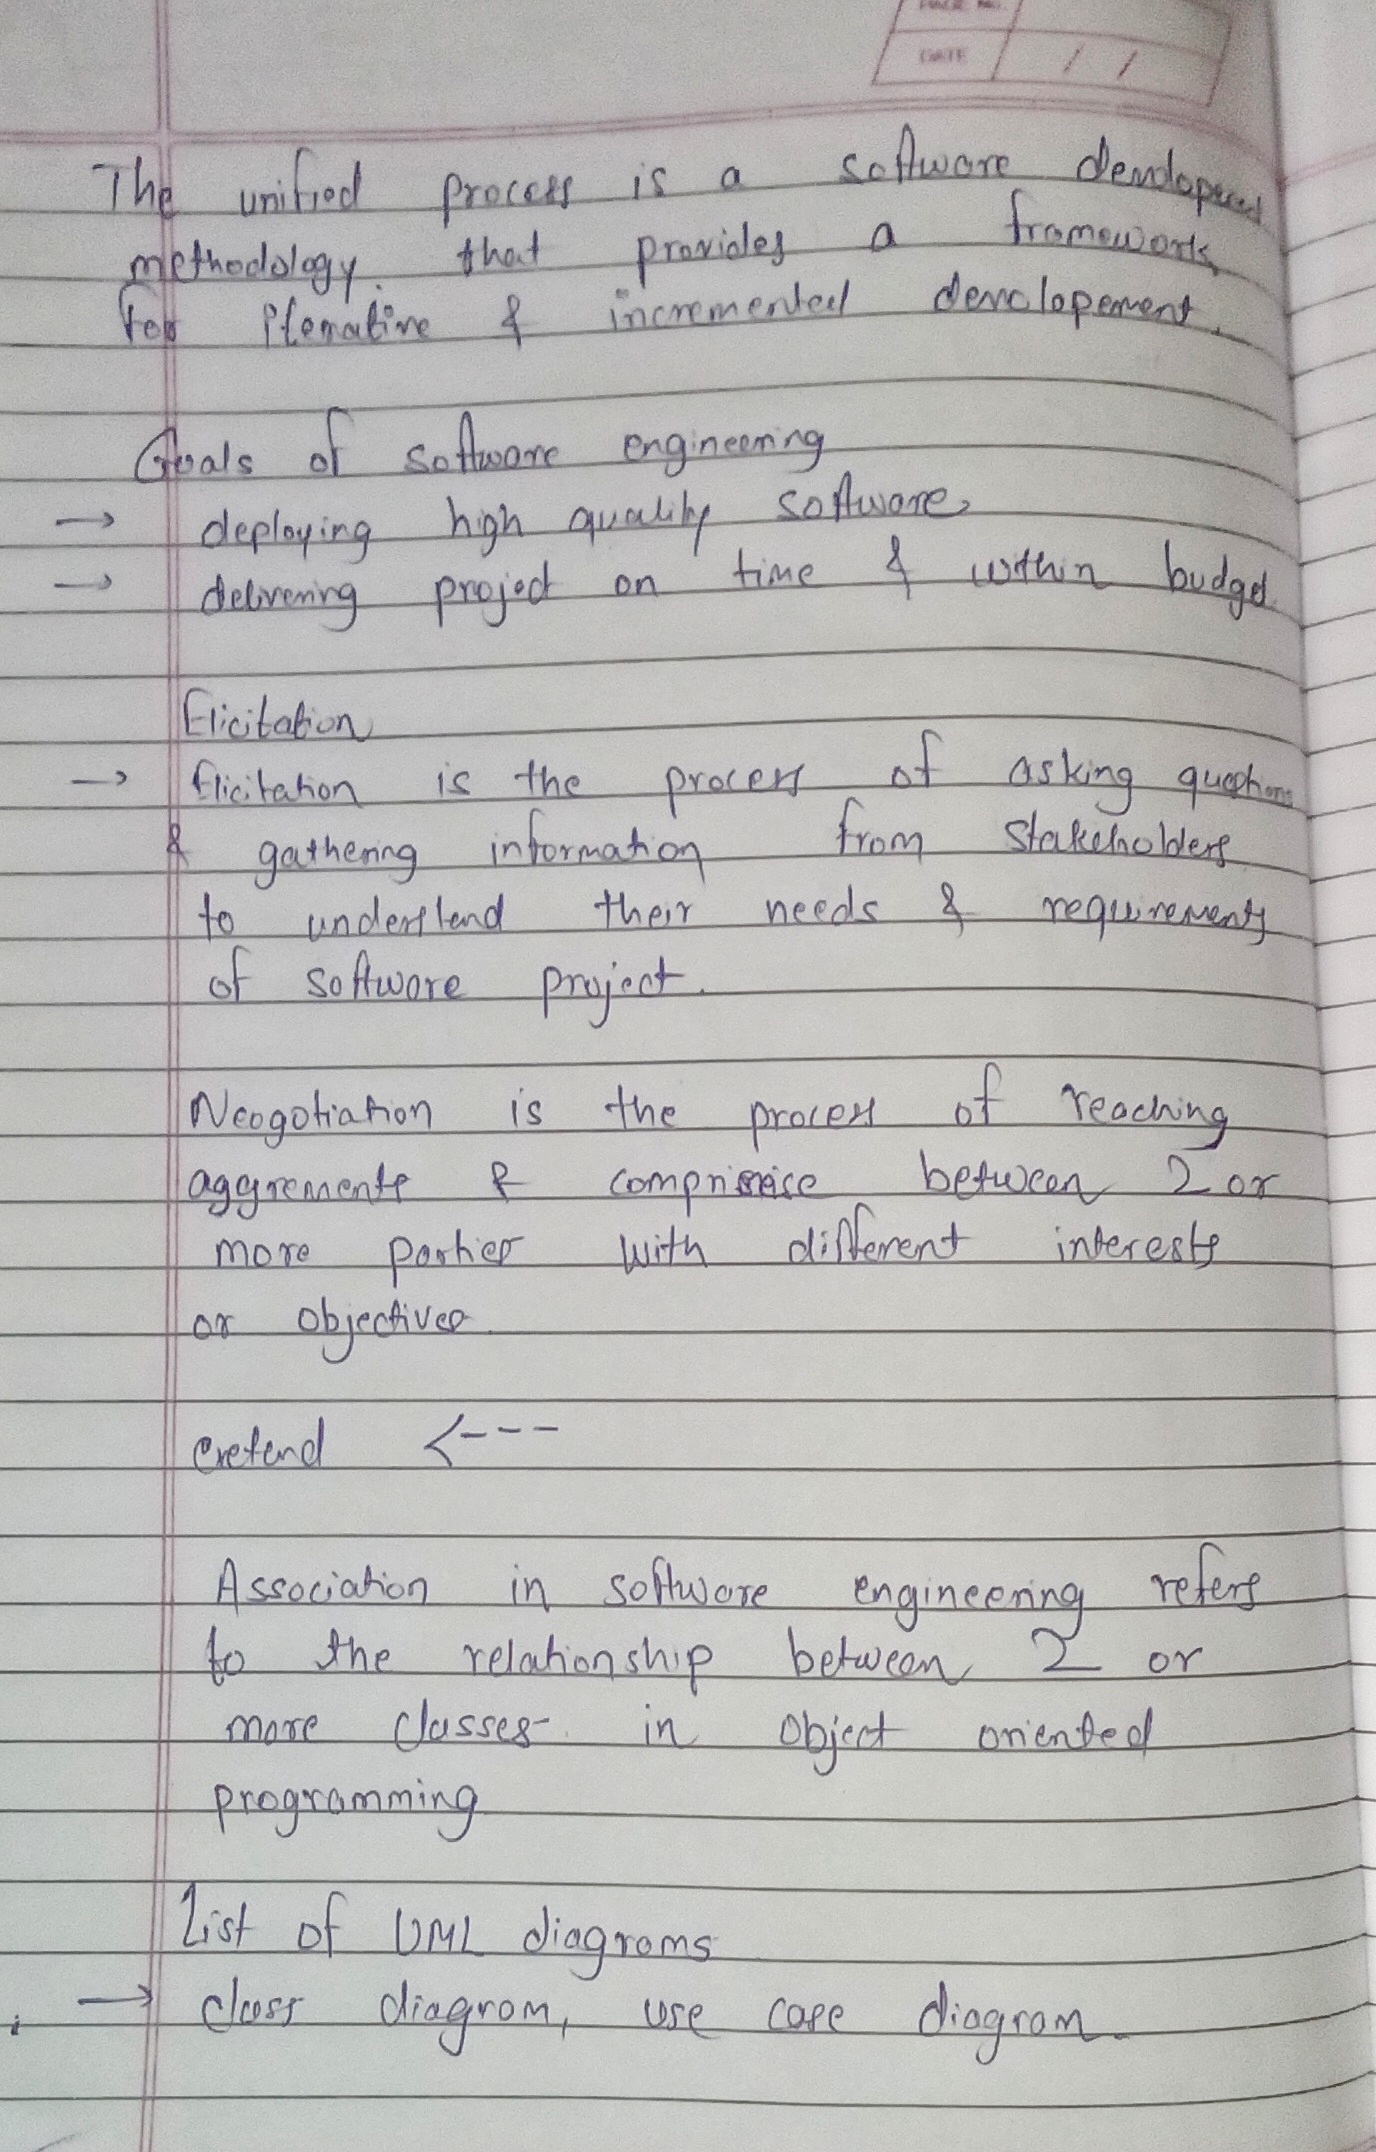 PAGE NO.
DATE / /
The unified process is a software
methodology that provides a framework
for iterative & incremented developement.
Goals of software engineering
→ deploying high quality software
→ delivering project on time & within budget.
Elicitation
→ Elicitation is the process of asking questions
& gathering information from stakeholders
to understand their needs & requirements
of software project.
Neogotiation is the process of reaching
aggrements & between 2 or
more parties with different interests
or objectives.
extend <---
Association in software engineering refers
to the relationship between 2 or
more classes in object oriented
programming
List of UML diagrams
→ class diagram, use case diagram.